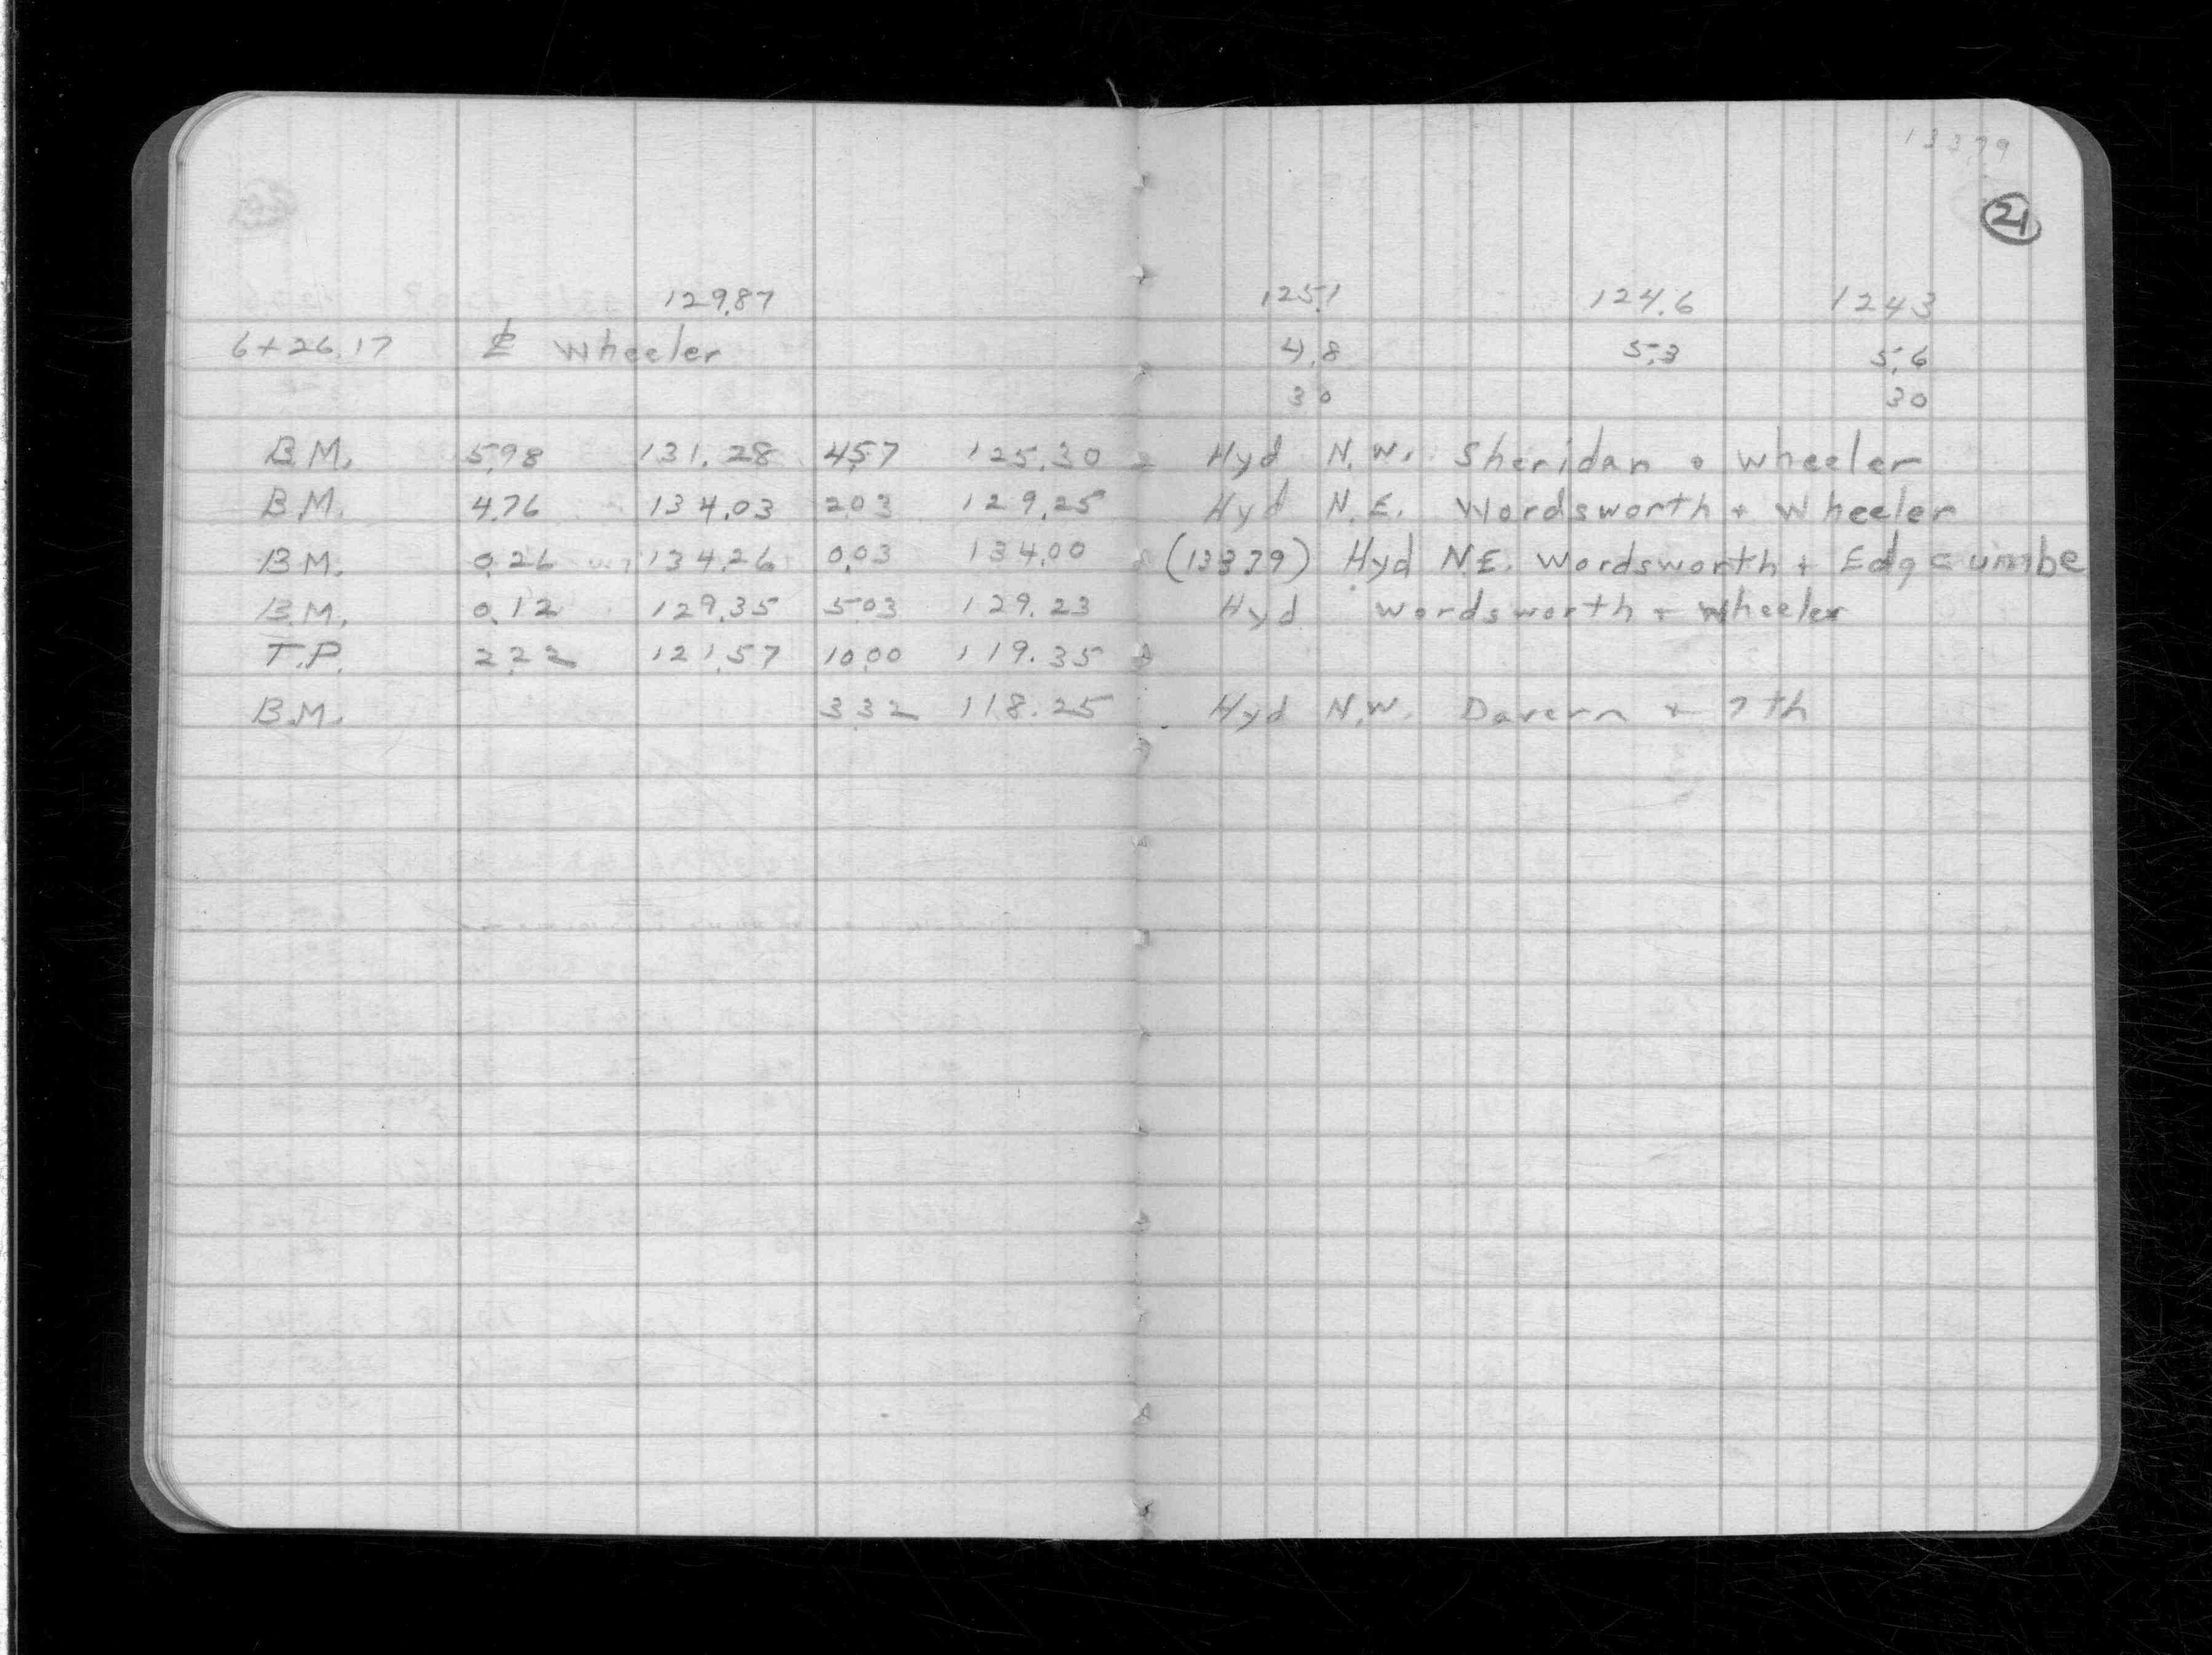 133.79
21
129.87 125.1 124.6 124.3
6+26.17 ℄ Wheeler 4.8 5.3 5.6
30 30
B.M. 5.98 131.28 4.57 125.30 Hyd N.W. Sheridan + Wheeler
B.M. 4.76 134.03 2.03 129.25 Hyd N.E. Wordsworth + Wheeler
B.M. 0.26 134.26 0.03 134.00 (133.79) Hyd N.E. Wordsworth + Edgcumbe
B.M. 0.12 129.35 5.03 129.23 Hyd Wordsworth + Wheeler
T.P. 2.22 121.57 10.00 119.35
B.M. 3.32 118.25 Hyd N.W. Davern + 7th